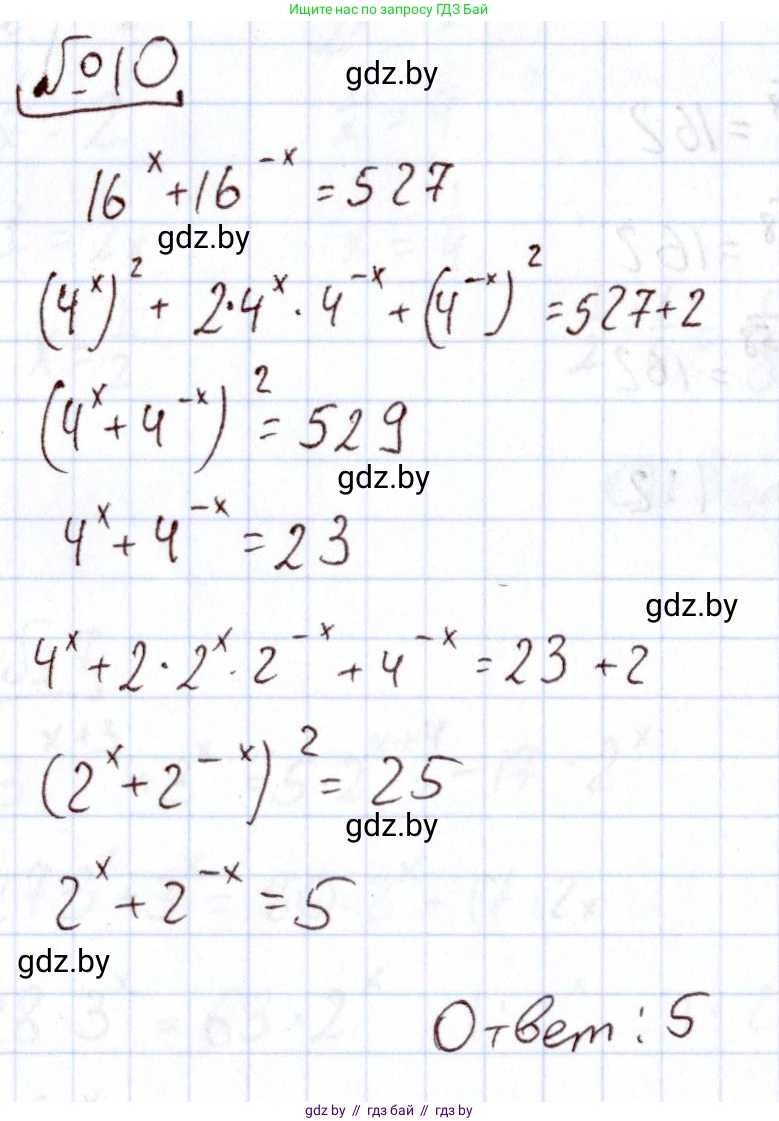 Ищите нас по запросу ГДЗ Бай
№10
gdz.by
16^x + 16^{-x} = 527
gdz.by
(4^x)^2 + 2·4^x · 4^{-x} + (4^{-x})^2 = 527+2
(4^x + 4^{-x})^2 = 529
gdz.by
4^x + 4^{-x} = 23
gdz.by
4^x + 2 · 2^x · 2^{-x} + 4^{-x} = 23 + 2
(2^x + 2^{-x})^2 = 25
gdz.by
2^x + 2^{-x} = 5
gdz.by
Ответ: 5
gdz.by // гдз бай // гдз by